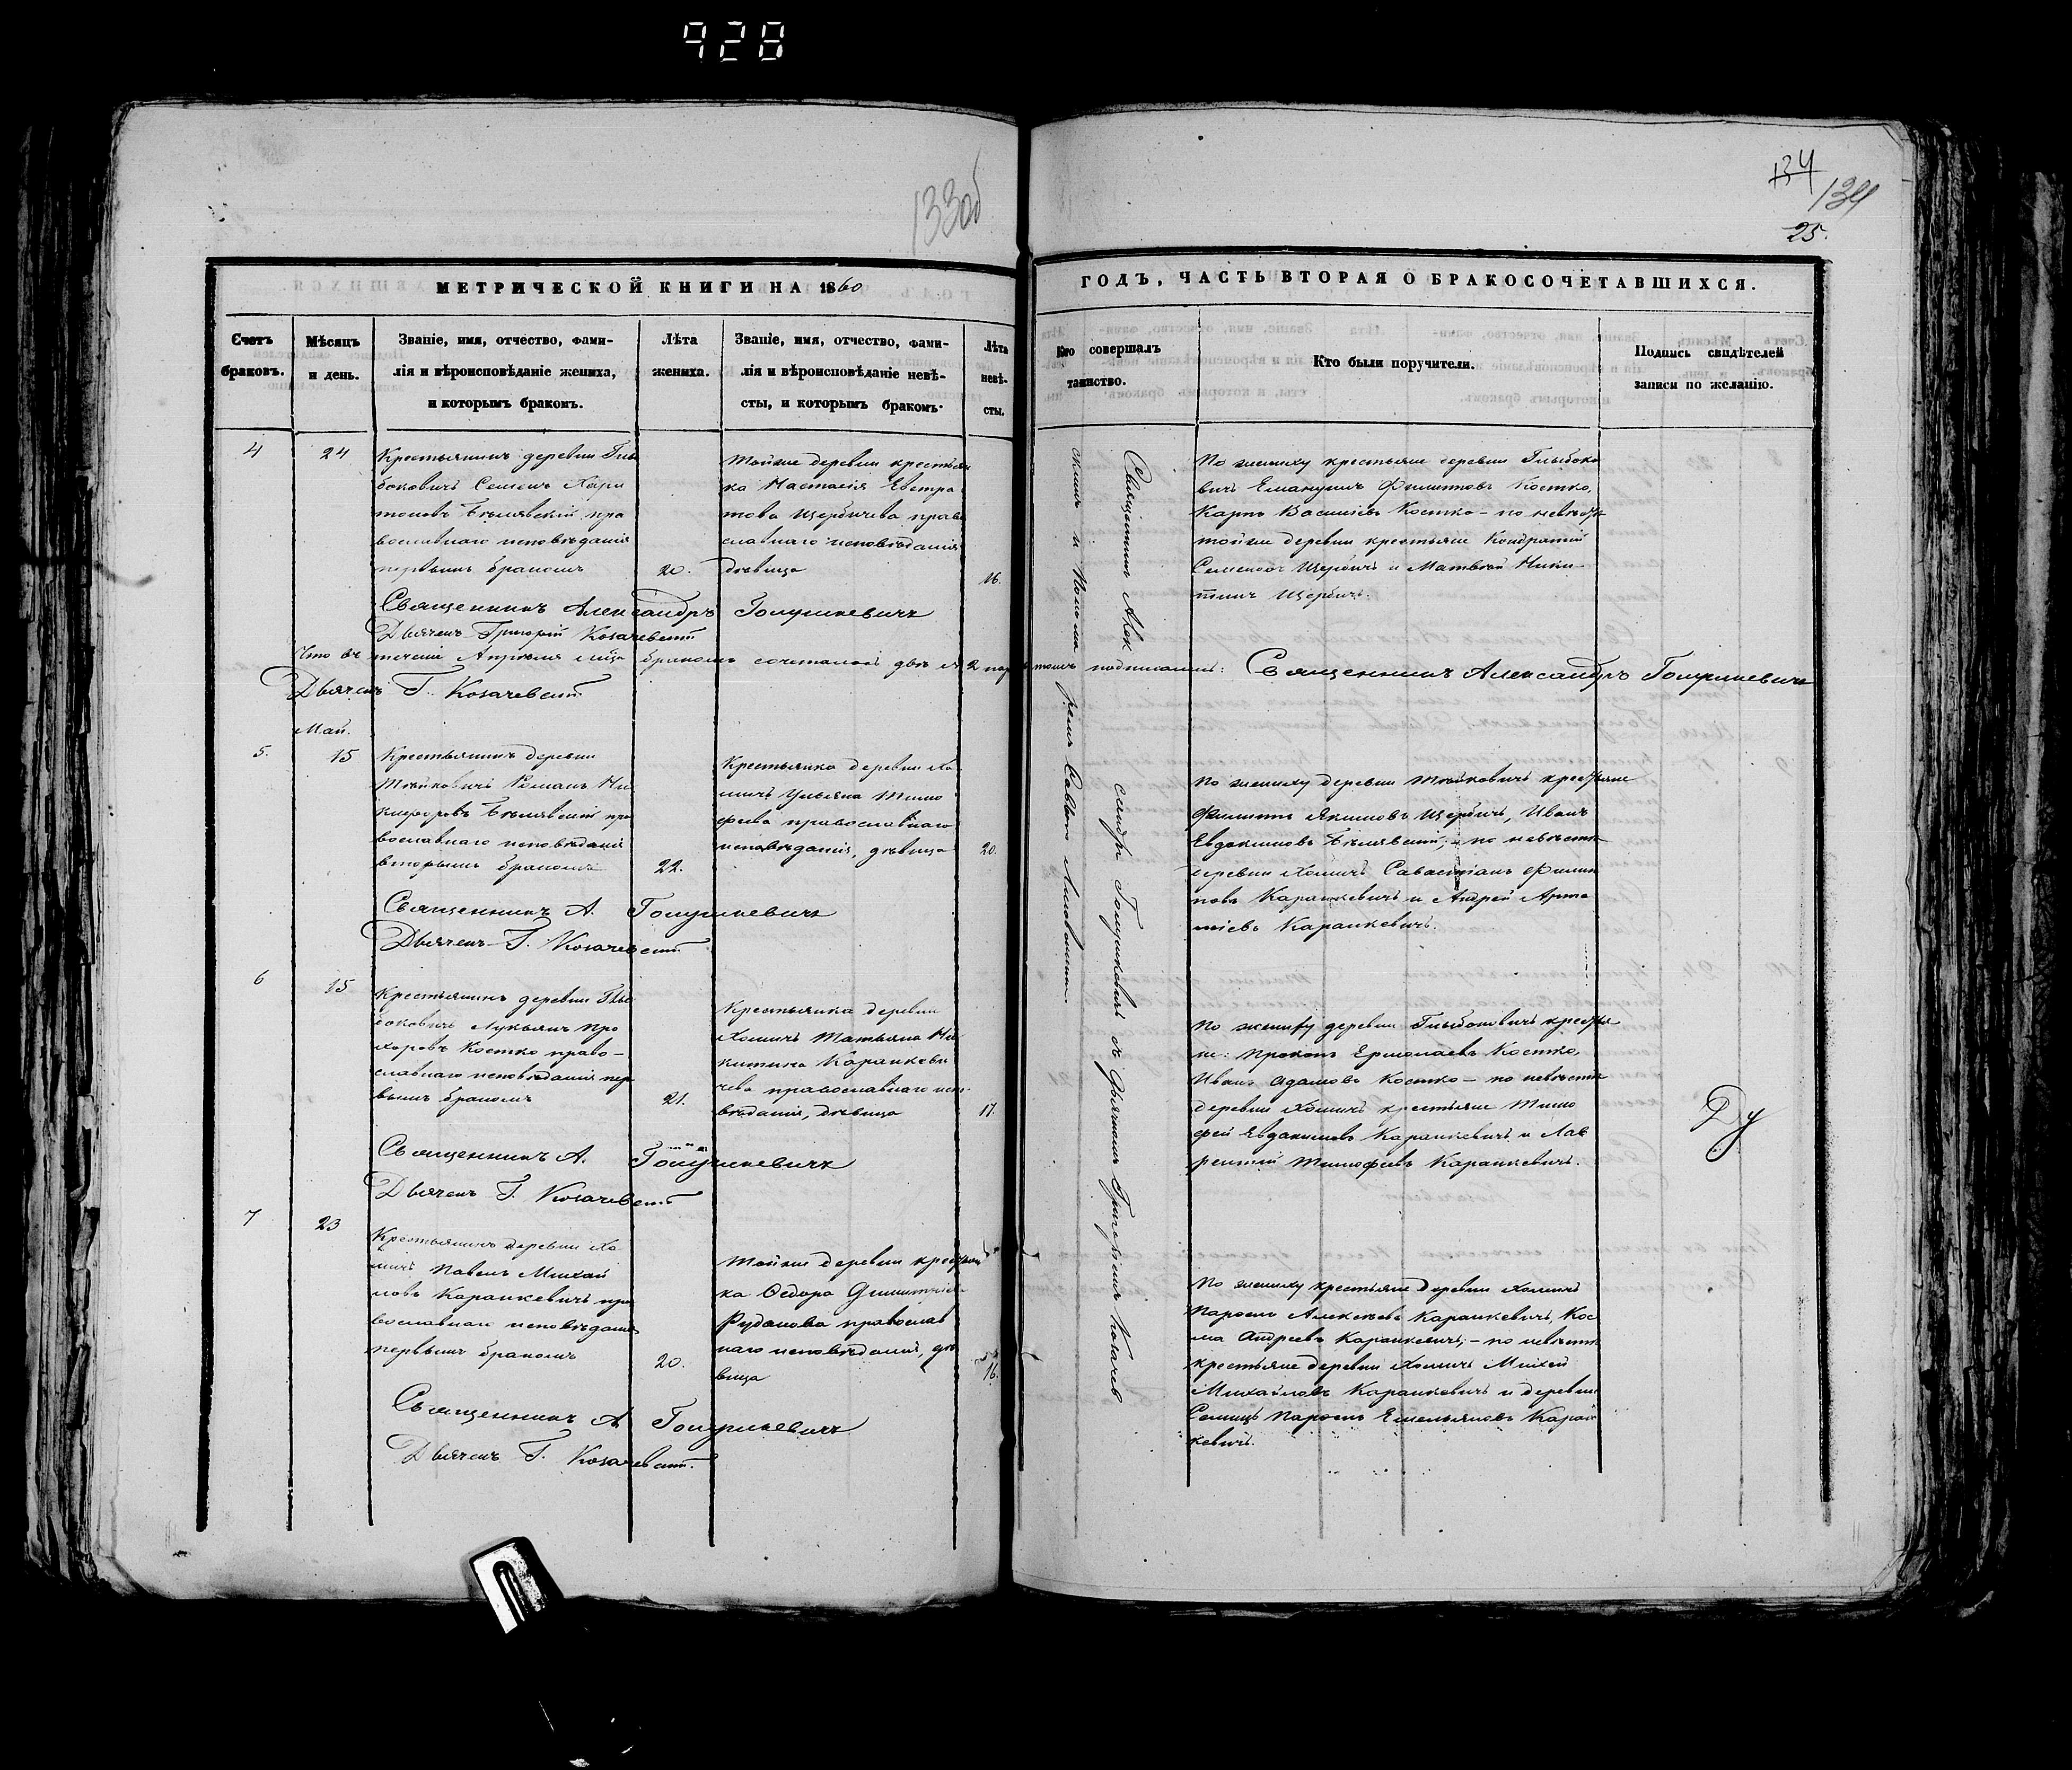 928
133об
134
134
25.
МЕТРИЧЕСКОЙ КНИГИ НА 1860
ГОДЪ, ЧАСТЬ ВТОРАЯ О БРАКОСОЧЕТАВШИХСЯ.
Счетъ
браковъ.
Мѣсяцъ
и день.
Званіе, имя, отчество, фами-
лія и вѣроисповѣданіе жениха,
и которымъ бракомъ.
Лѣта
жениха.
Званіе, имя, отчество, фами-
лія и вѣроисповѣданіе невѣ-
сты, и которымъ бракомъ.
Лѣта
невѣ-
сты.
Кто совершалъ
таинство.
Кто были поручители.
Подпись свидѣтелей
записи по желанію.
4
24
Крестьянинъ деревни Глы
боковичь Семенъ Хари
тоновъ Бѣлявскій пра
вославнаго исповѣданія
первымъ бракомъ
20.
Тойже деревни крестьян
ка Настасія Евстра
това Щербичева право
славнаго исповѣданія
дѣвица
16.
По жениху крестьяне деревни Глыбоко
вичь Емануилъ Филиповъ Костко,
Карпъ Васильевъ Костко – по невѣстѣ
тойже деревни крестьяне Кондратій
Семеновъ Щербичь и Матвѣй Ники
тинъ Щербичь.
Священникъ Александръ Голушкевичъ
Дьячекъ Григорій Козачевскій
Что въ теченіи Апрѣля мѣсца бракомъ сочеталось двѣ 2 пары въ томъ подписались: Священникъ Александръ Голушкевичъ
Дьячекъ Г. Козачевскій
Май.
5.
15
Крестьянинъ деревни
Тойковичь Романъ Ни
кифоровъ Бѣлявскій пра
вославнаго исповѣданія
вторымъ бракомъ
22.
Крестьянка деревни Хо
мичь Ульяна Тимо
феева православнаго
исповѣданія, дѣвица
20.
По жениху деревни Тойковичь крестьяне
Филиппъ Якимовъ Щербичь, Иванъ
Евдокимовъ Бѣлявскій; – по невѣстѣ
деревни Хомичь Савастіанъ Филип
повъ Каранкевичь и Андрей Арте
міевъ Каранкевичь.
Священникъ А. Голушкевичъ
Дьячекъ Г. Козачевскій
6
15
Крестьянинъ деревни Глы
боковичь Лукьянъ Про
хоровъ Костко право-
славнаго исповѣданія пер
вымъ бракомъ
21.
Крестьянка деревни
Хомичь Татьяна Ни
китина Каранкеви
чева православнаго испо
вѣданія, дѣвица
17.
По жениху деревни Глыбоковичь крестья
не: Прокопъ Ермолаевъ Костко,
Иванъ Адамовъ Костко – по невѣстѣ
деревни Хомичь крестьяне Тимо
фей Евдокимовъ Каранкевичь и Лав
рентій Тимофеевъ Каранкевичь.
Ду
Священникъ А. Голушкевичъ
Дьячекъ Г. Козачевскій
7
23
Крестьянинъ деревни Хо
мичь Павелъ Михай
ловъ Каранкевичь пра
вославнаго исповѣданія
первымъ бракомъ
20.
Тойже деревни крестьян
ка Ѳедора Димитріе
Рудакова православ
наго исповѣданія, дѣ
вица
16.
По жениху крестьяне деревни Хомичь
Парфенъ Алексѣевъ Каранкевичь, Кос
ма Андреевъ Каранкевичь; – по невѣстѣ
крестьяне деревни Хомичь Михей
Михайловъ Каранкевичь и деревни
Парфенъ Емельяновъ Каран
кевичь.
Священникъ А. Голушкевичъ
Дьячекъ Г. Козачевскій.
Священникъ Алек
сандръ Голушкевичъ съ Дьячкомъ Григоріемъ Козачев
скимъ и Пономаремъ Саввою